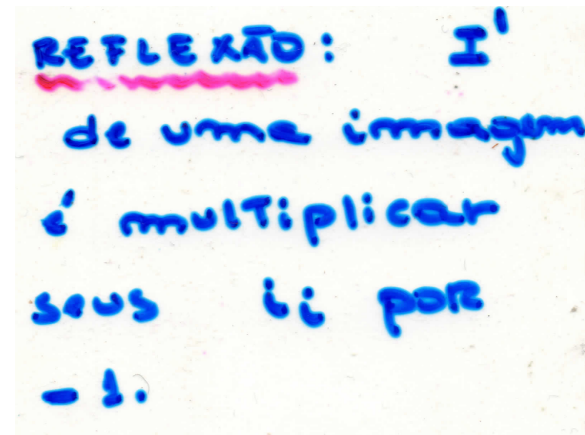 REFLEXÃO: I'
de uma imagem
é multiplicar
seus ii por
-1.